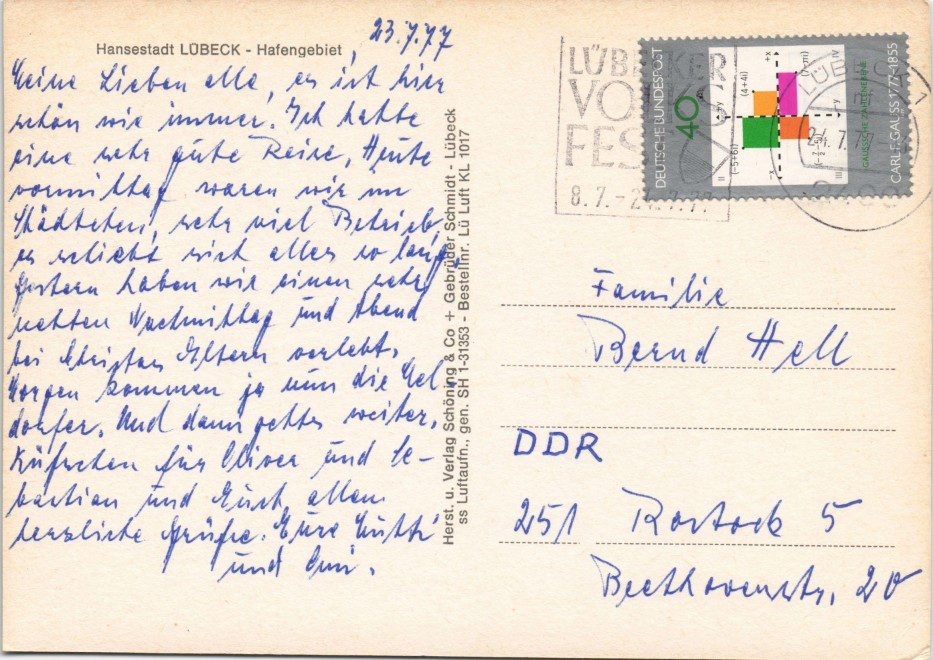 Hansestadt LÜBECK - Hafengebiet
23.7.77
Meine Lieben alle, es ist hier
schön wie immer. Ich hatte
eine sehr gute Reise, Heute
vormittag waren wir im
Städtchen, sehr viel Betrieb,
es schiebt sich alles so lang,
Gestern haben wir einen sehr
netten Nachmittag und Abend
bei Christas Eltern verlebt.
Morgen kommen ja nun die
dorfer. Und dann gehts weiter.
Küßchen für Oliver und Se-
bastian und Euch allen
herzliche Grüße. Eure Mutti
und Omi.
Herst. u. Verlag Schöning & Co + Gebrüder Schmidt - Lübeck
ss Luftaufn., gen. SH 1-31353 - Bestellnr. Lü Luft KL 1017
LÜBECKER
VOLKS
FEST
8.7.-24.7.77
LÜBECK
DEUTSCHE BUNDESPOST
40
(-5+6i)
(4+4i)
+x
-x
+y
-y
II
III
IV
GAUSSSCHE ZAHLENEBENE
CARL F. GAUSS 1777-1855
Familie
Bernd Hell
DDR
251 Rostock 5
Beethovenstr. 20